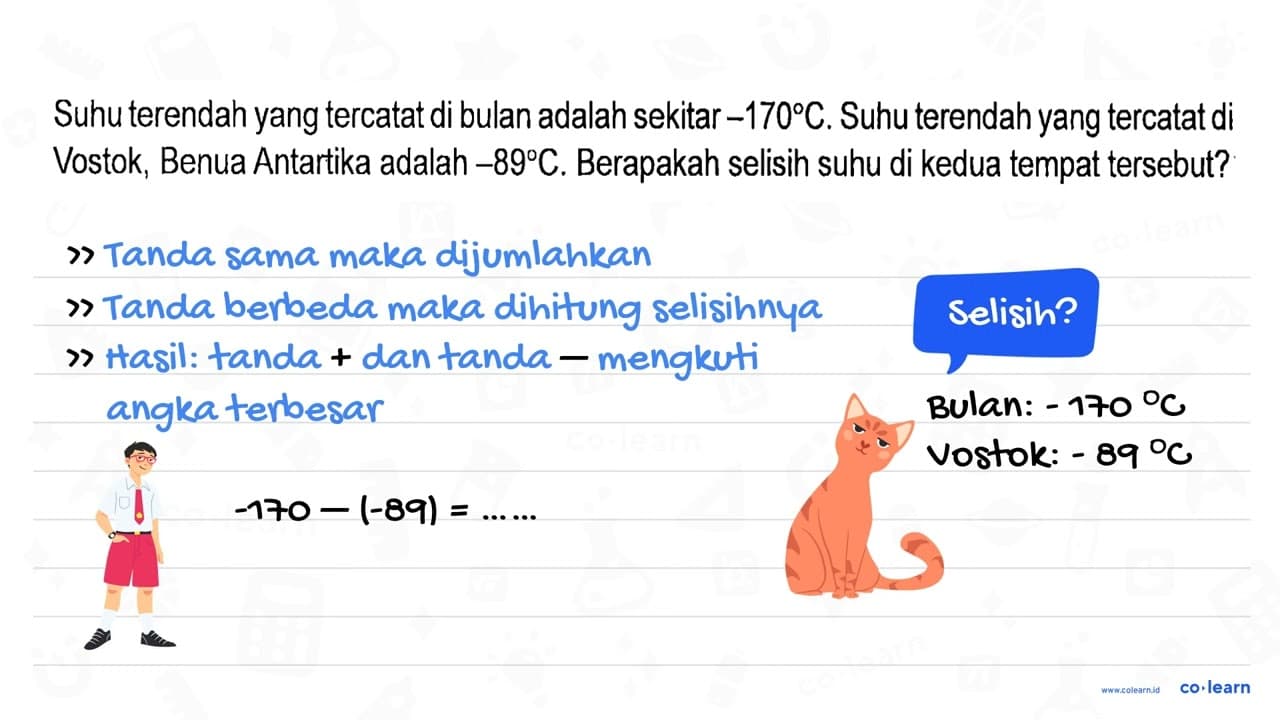 Suhu terendah yang tercatat di bulan adalah sekitar –170°C. Suhu terendah yang tercatat di
Vostok, Benua Antartika adalah –89°C. Berapakah selisih suhu di kedua tempat tersebut?
>> Tanda sama maka dijumlahkan
>> Tanda berbeda maka dihitung selisihnya
>> Hasil: tanda + dan tanda — mengkuti
angka terbesar
Selisih?
Bulan: - 170 °C
Vostok: - 89 °C
-170 — (-89) = ... ...
www.colearn.id
co·learn